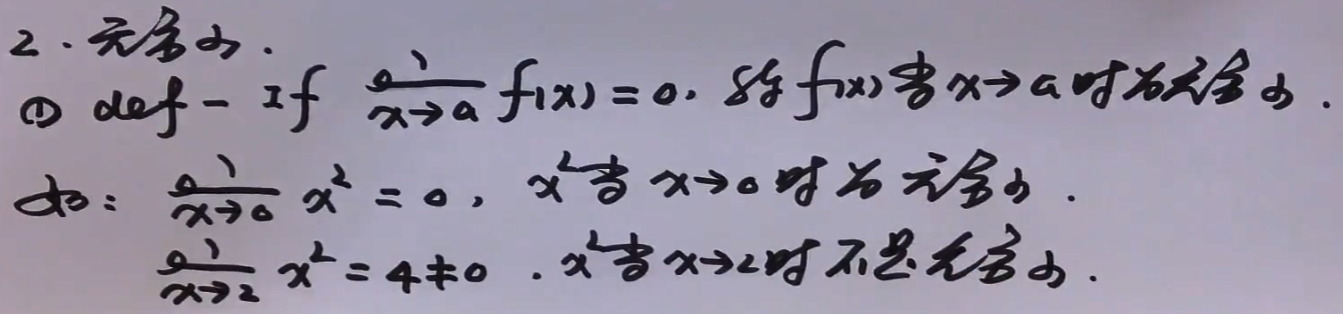 2. 无穷小.
① def - If lim_{x→a} f(x) = 0. 称 f(x) 当 x→a 时为无穷小.
如: lim_{x→0} x² = 0, x² 当 x→0 时为无穷小.
lim_{x→2} x² = 4 ≠ 0. x² 当 x→2 时不是无穷小.